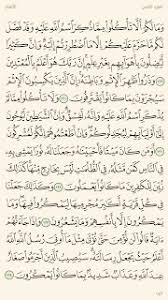 وَمَا لَكُمْ أَلَّا تَأْكُلُوا۟ مِمَّا ذُكِرَ ٱسْمُ ٱللَّهِ عَلَيْهِ وَقَدْ فَصَّلَ
لَكُم مَّا حَرَّمَ عَلَيْكُمْ إِلَّا مَا ٱضْطُرِرْتُمْ إِلَيْهِ وَإِنَّ كَثِيرًا
لَّيُضِلُّونَ بِأَهْوَآئِهِم بِغَيْرِ عِلْمٍ إِنَّ رَبَّكَ هُوَ أَعْلَمُ بِٱلْمُعْتَدِينَ ١١٩
وَذَرُوا۟ ظَٰهِرَ ٱلْإِثْمِ وَبَاطِنَهُۥٓ إِنَّ ٱلَّذِينَ يَكْسِبُونَ ٱلْإِثْمَ
سَيُجْزَوْنَ بِمَا كَانُوا۟ يَقْتَرِفُونَ ١٢٠ وَلَا تَأْكُلُوا۟ مِمَّا
لَمْ يُذْكَرِ ٱسْمُ ٱللَّهِ عَلَيْهِ وَإِنَّهُۥ لَفِسْقٌ وَإِنَّ ٱلشَّيَٰطِينَ
لَيُوحُونَ إِلَىٰٓ أَوْلِيَآئِهِمْ لِيُجَٰدِلُوكُمْ وَإِنْ أَطَعْتُمُوهُمْ إِنَّكُمْ
لَمُشْرِكُونَ ١٢١ أَوَمَن كَانَ مَيْتًا فَأَحْيَيْنَٰهُ وَجَعَلْنَا لَهُۥ نُورًا
يَمْشِى بِهِۦ فِى ٱلنَّاسِ كَمَن مَّثَلُهُۥ فِى ٱلظُّلُمَٰتِ لَيْسَ بِخَارِجٍ مِّنْهَا
كَذَٰلِكَ زُيِّنَ لِلْكَٰفِرِينَ مَا كَانُوا۟ يَعْمَلُونَ ١٢٢ وَكَذَٰلِكَ
جَعَلْنَا فِى كُلِّ قَرْيَةٍ أَكَٰبِرَ مُجْرِمِيهَا لِيَمْكُرُوا۟ فِيهَا
وَمَا يَمْكُرُونَ إِلَّا بِأَنفُسِهِمْ وَمَا يَشْعُرُونَ ١٢٣ وَإِذَا جَآءَتْهُمْ
ءَايَةٌ قَالُوا۟ لَن نُّؤْمِنَ حَتَّىٰ نُؤْتَىٰ مِثْلَ مَآ أُوتِىَ رُسُلُ ٱللَّهِ ٱللَّهُ
أَعْلَمُ حَيْثُ يَجْعَلُ رِسَالَتَهُۥ سَيُصِيبُ ٱلَّذِينَ أَجْرَمُوا۟ صَغَارٌ
عِندَ ٱللَّهِ وَعَذَابٌ شَدِيدٌۢ بِمَا كَانُوا۟ يَمْكُرُونَ ١٢٤